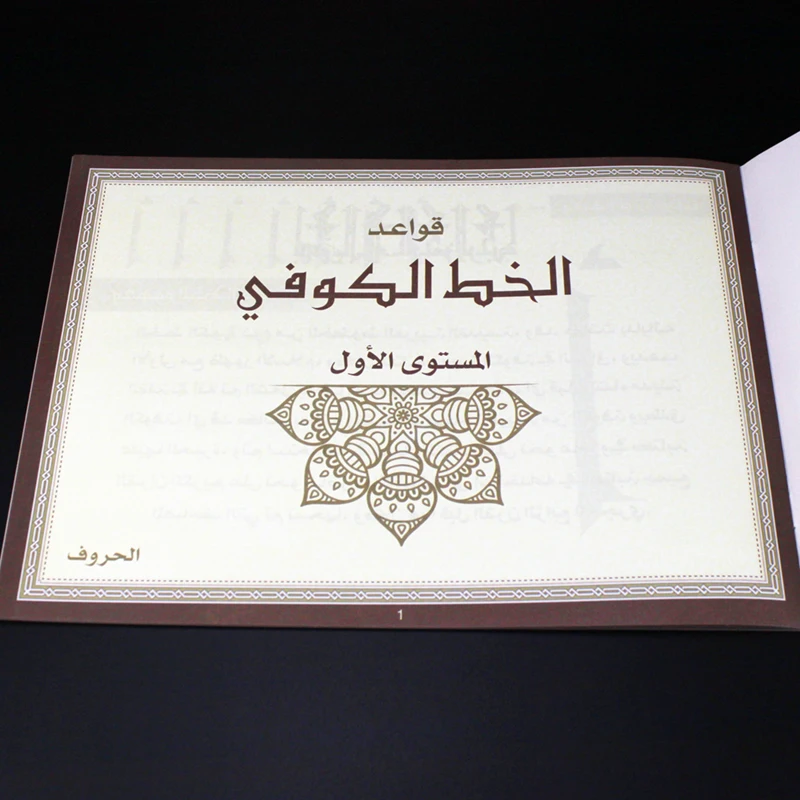 قواعد
الخط الكوفي
المستوى الأول
الحروف
1